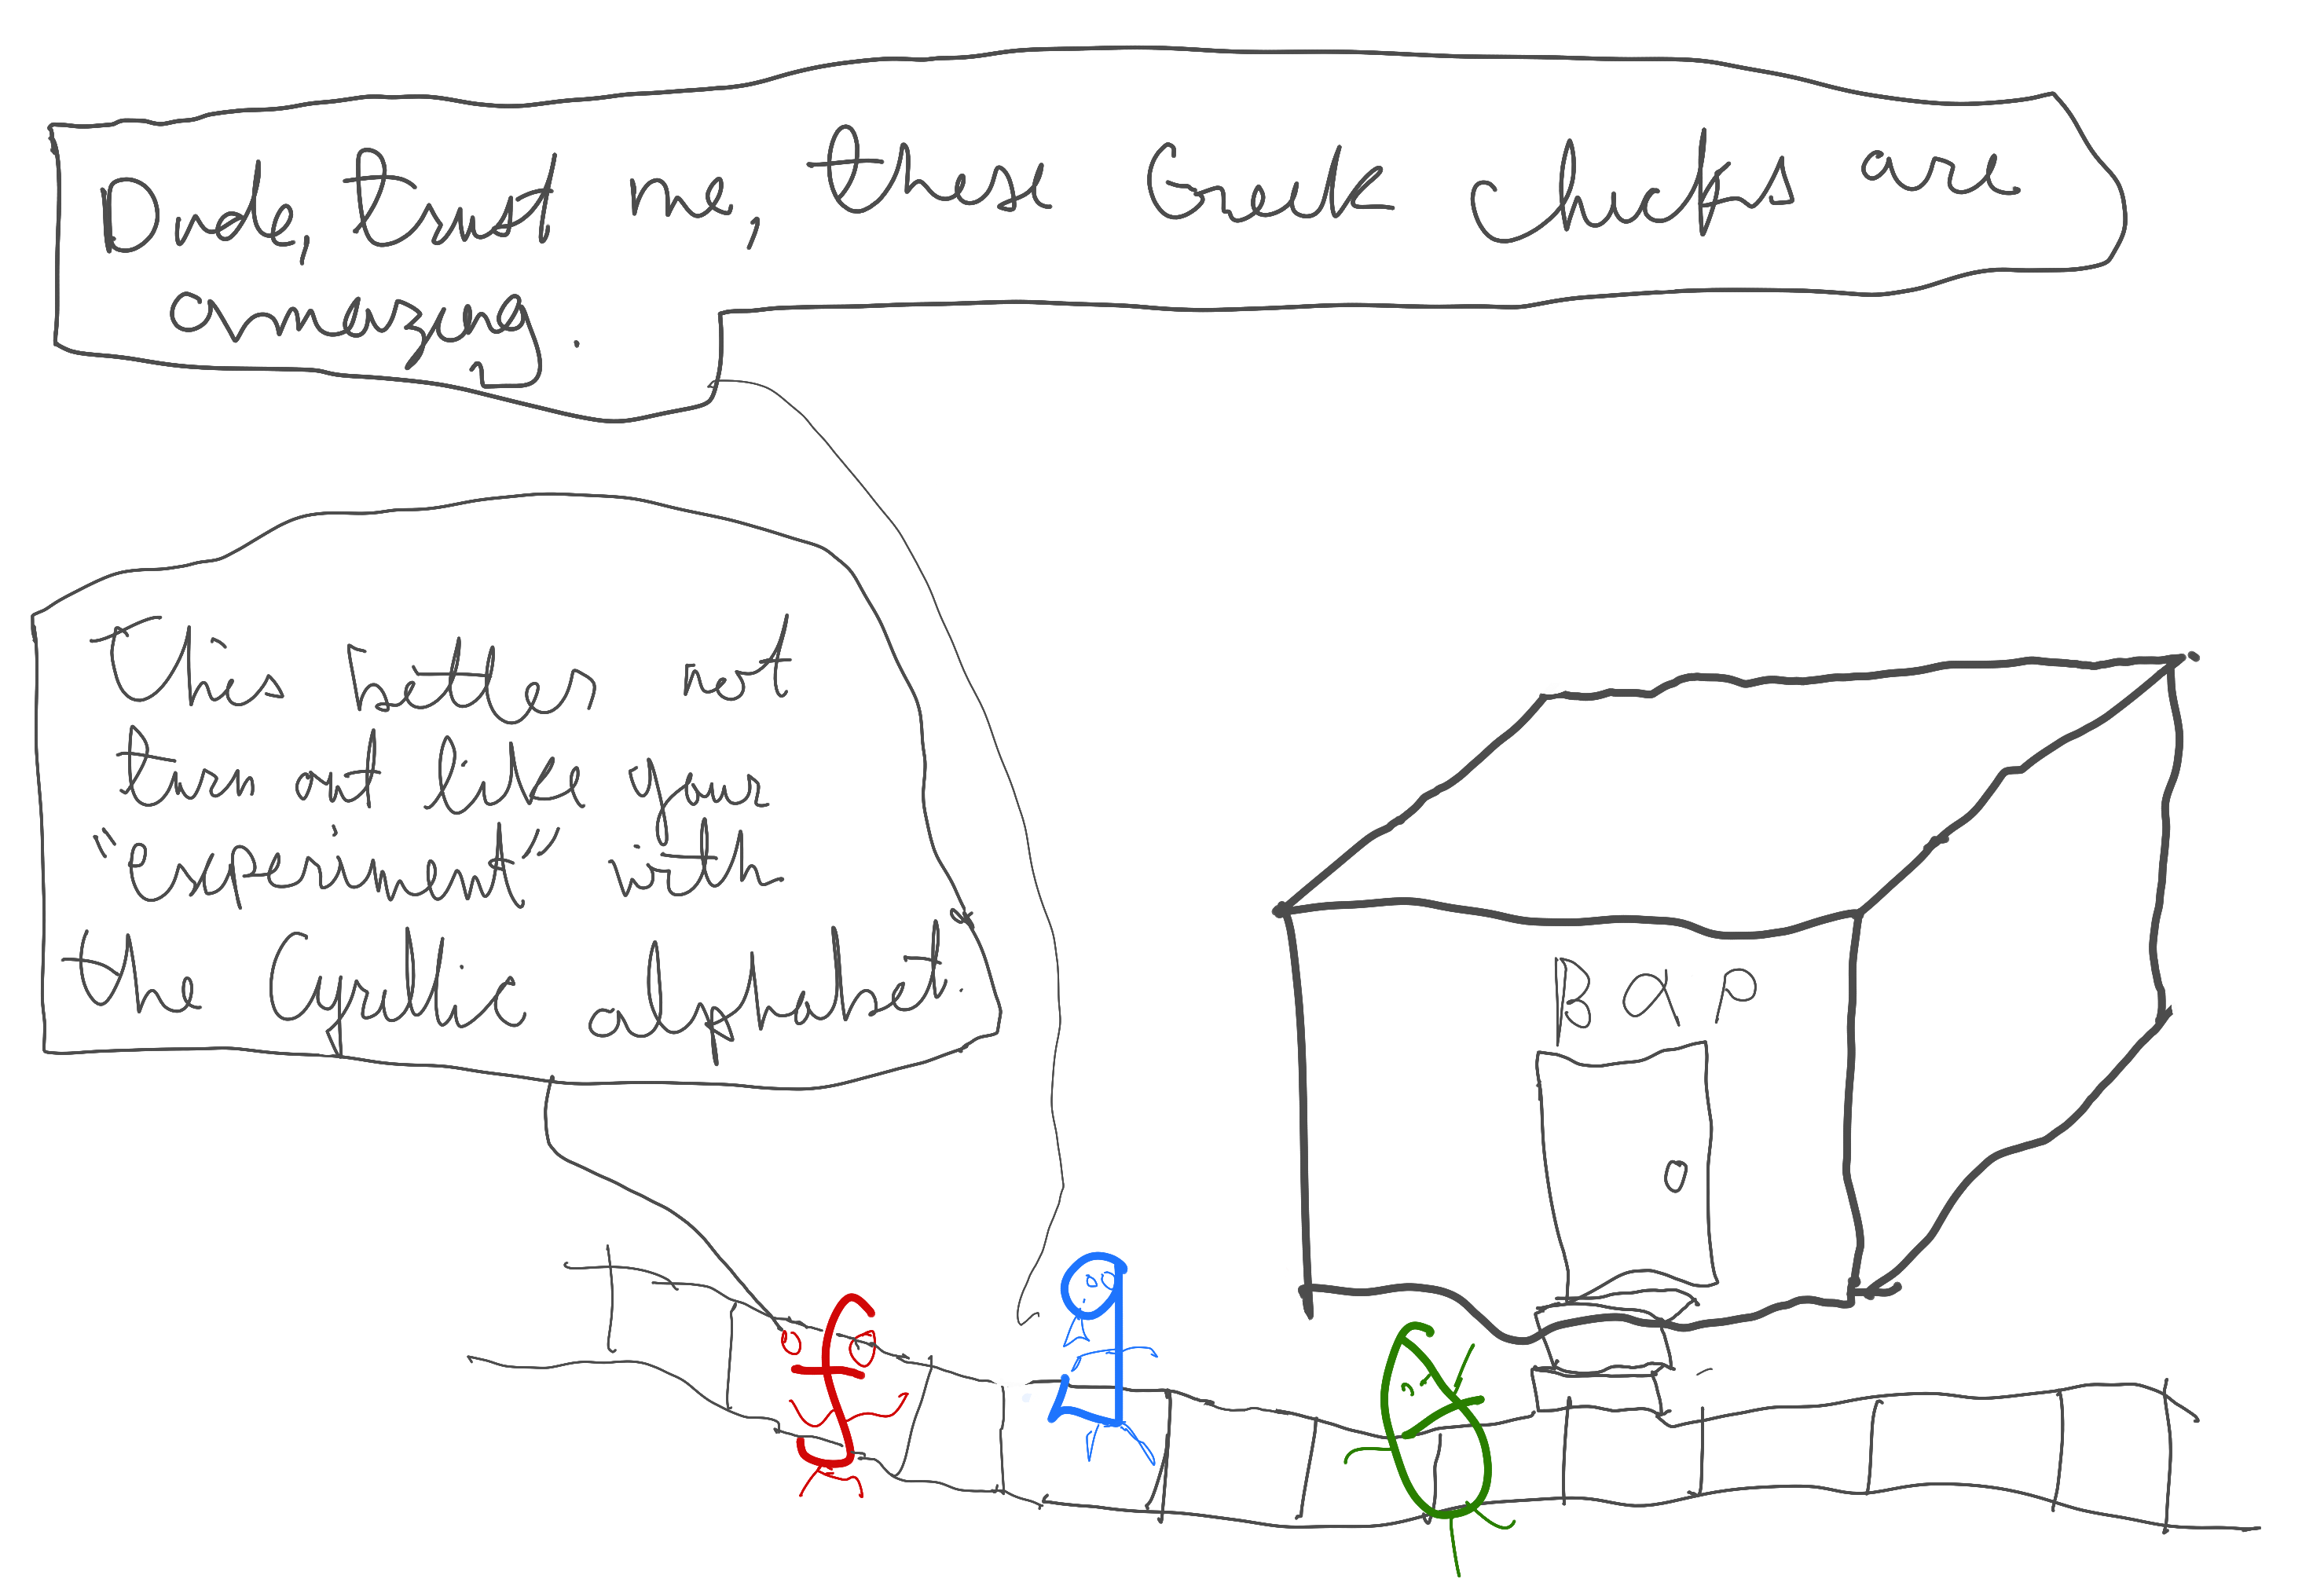 Dude, trust me, these Greek chicks are
amazing.
This better not
turn out like your
"experiment" with
the Cyrillic alphabet.
Βαρ